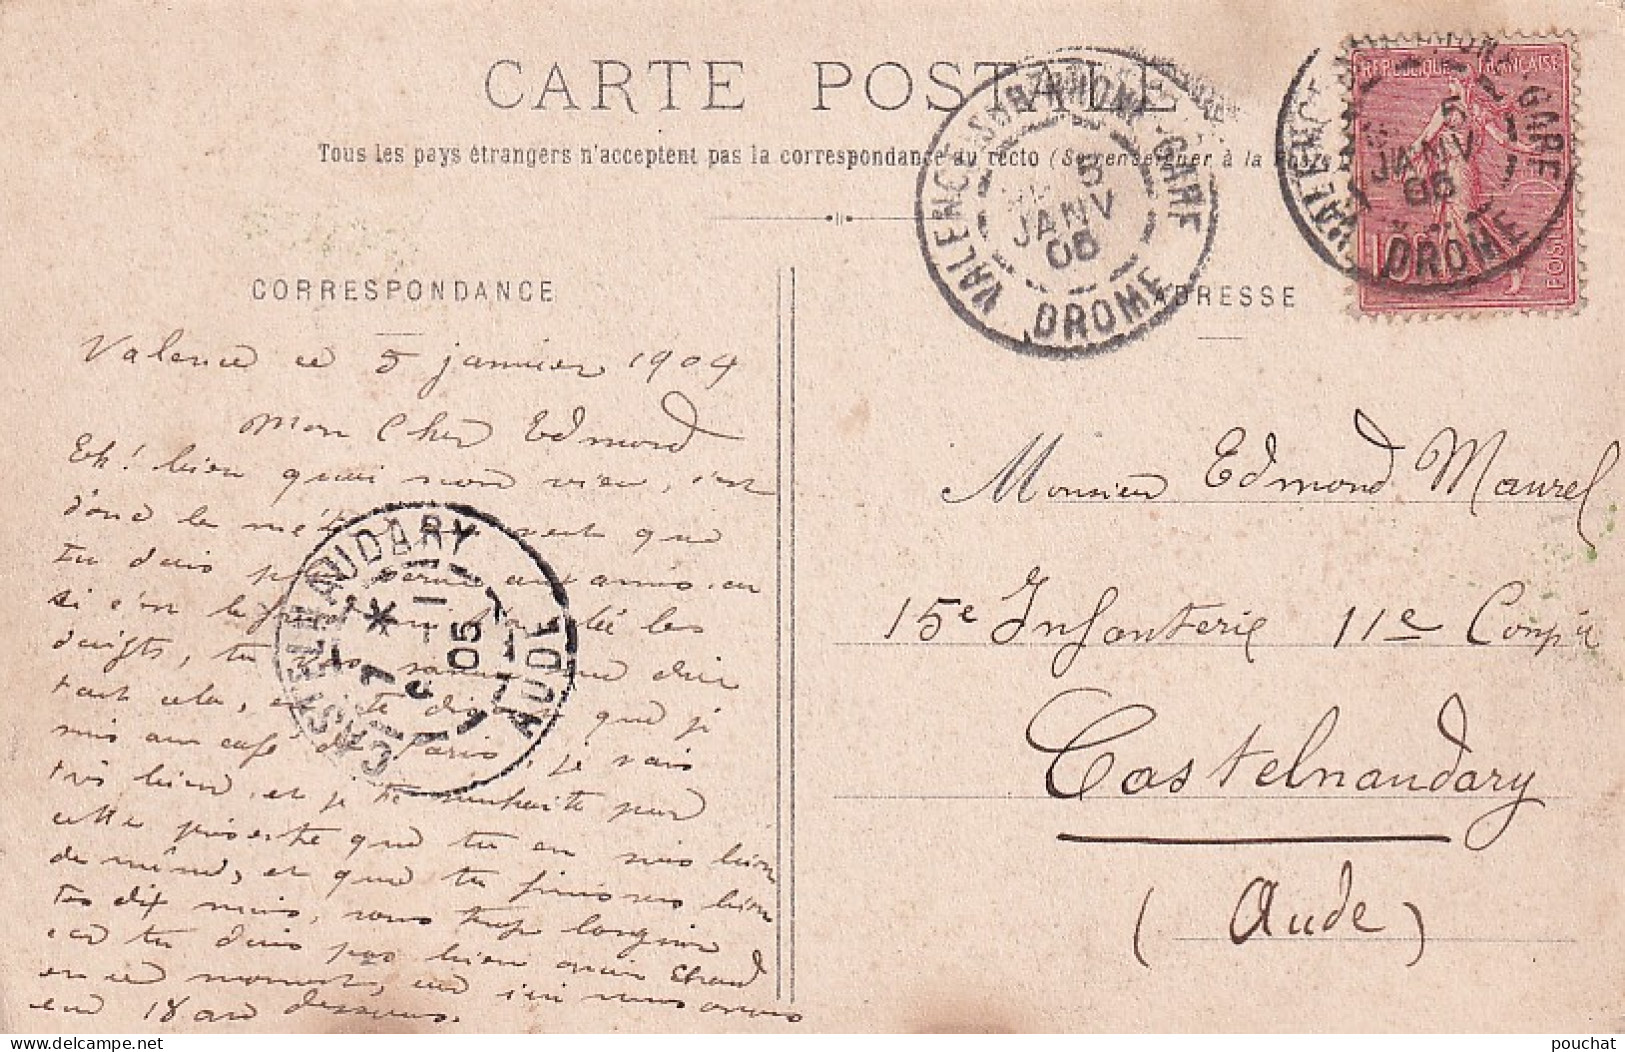 CARTE POSTALE
Tous les pays étrangers n'acceptent pas la correspondance au recto (Se renseigner à la Poste
CORRESPONDANCE
ADRESSE
VALENCE-SUR-RHONE-GARE
5
JANV
05
DROME
VALENCE GARE
5
JANV
05
DROME
REPUBLIQUE FRANÇAISE
10
POSTES
Valence ce 5 janvier 1904
Mon Cher Edmond
Eh! bien quoi mon vieu, c'est
donc le veut que
tu dois aux amis, ou
si c'est le les
doigts, tu me dire
tout cela, te que je
suis au café de Paris, je vais
très bien, et je te souhaite par
cette présente que tu en sois bien
de même, et que tu finisses bien
tes dix mois, sans trop languir
car tu dois pas bien avoir chaud
en ce moment, car ici nous avons
en 18 au dessous.
CASTELNAUDARY
7
1
05
AUDE
Monsieur Edmond Maurel
15e Infanterie 11e Comp ie
Castelnaudary
(Aude)
pouchat